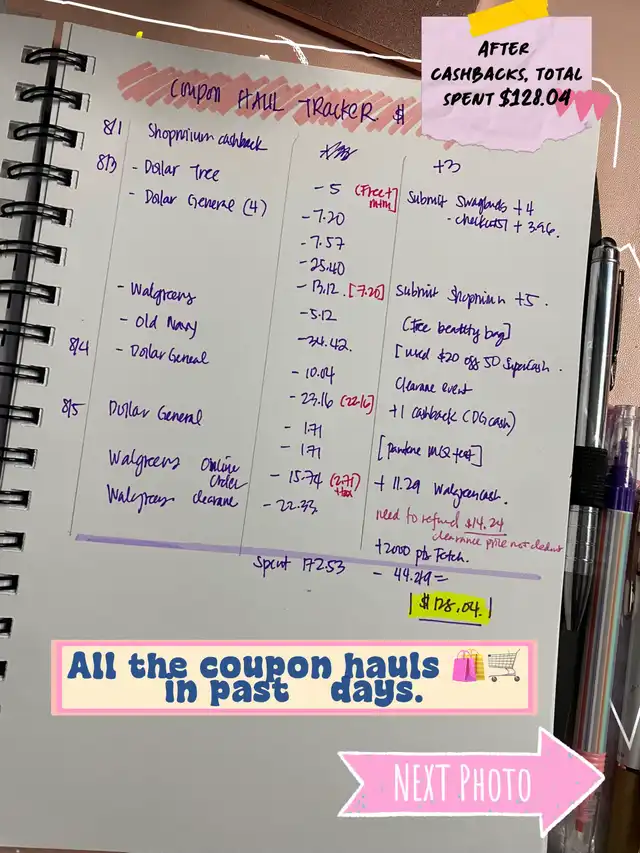 AFTER
CASHBACKS, TOTAL
SPENT $128.04
COUPON HAUL TRACKER $
8/1 Shopmium cashback +3
8/3 - Dollar Tree - 5 (Free + Submit Swagbucks +4
- Dollar General (4) - 7.20 - checkout51 + 3.96.
- 7.57
- 25.40
- Walgreens - 13.12 . [7.20] Submit Shopmium +5 .
- Old Navy - 5.12 [Free beauty bag]
8/4 - Dollar General - 34.42. [used $20 off 50 Supercash .
- 10.04 Clearance event
8/5 Dollar General - 23.16 (22.16) +1 cashback (DG cash)
- 1.71
- 1.71
Walgreens Online Order - 15.74 (2.71) tax + 11.29 Walgreencash.
Walgreens clearance - 22.33 need to refund $14.24
clearance price not deduct
+2000 pts Fetch.
Spent 172.53 - 44.49 =
$128.04.
All the coupon hauls
in past days.
NEXT PHOTO